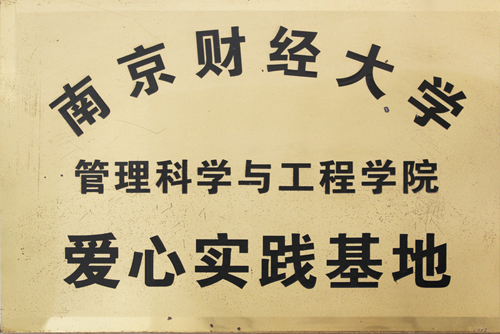 南京财经大学
管理科学与工程学院
爱心实践基地